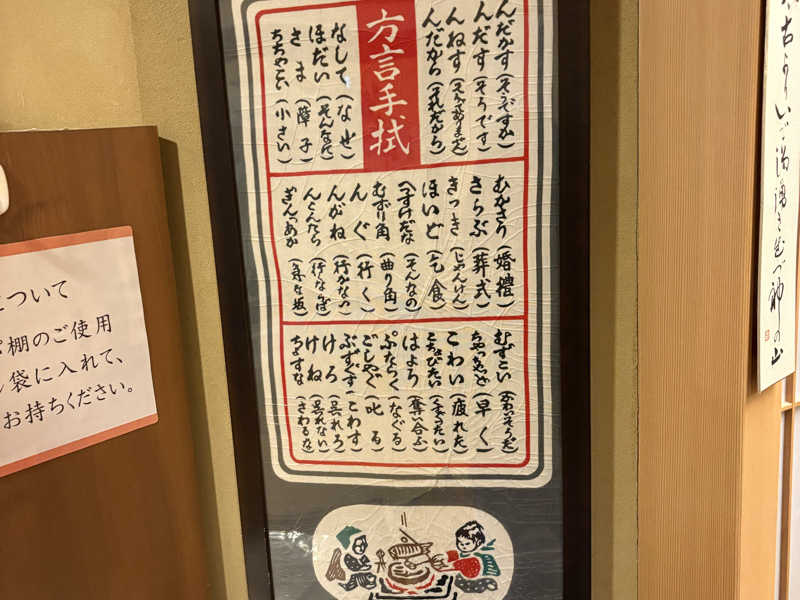 方言手拭
んだがす(そうですか)
んだす(そうです)
んねす(そうでありません)
んだから(それだから)
なして(なぜ)
ほだい(そんなに)
さま(障子)
ちちゃこい(小さい)
むかさり(婚禮)
さらぶ(葬式)
きっき(じゃんけん)
ほいど(乞食)
へすけだな(そんなの)
むずり角(曲り角)
んぐ(行く)
んがね(行かない)
んぐんだら(行くならば)
むずこい(かわいそうだ)
ちゃっちゃど(早く)
こわい(疲れた)
こちょびたい(くすぐったい)
はょろ(奪合ふ)
ぶたらく(なぐる)
ごしゃぐ(叱る)
ぶずぐす(こわす)
けろ(呉れろ)
けね(呉れない)
ちょすな(さわるな)
について
棚のご使用
袋に入れて、
お持ちください。
の山